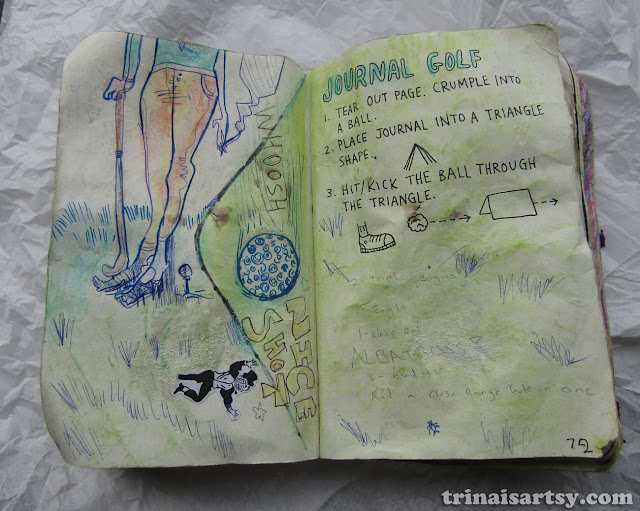 WHOOSH
NICE
SHOT
JOURNAL GOLF
1. TEAR OUT PAGE. CRUMPLE INTO
A BALL.
2. PLACE JOURNAL INTO A TRIANGLE
SHAPE.
3. HIT/KICK THE BALL THROUGH
THE TRIANGLE.
a close Range hole in one
trinaisartsy.com